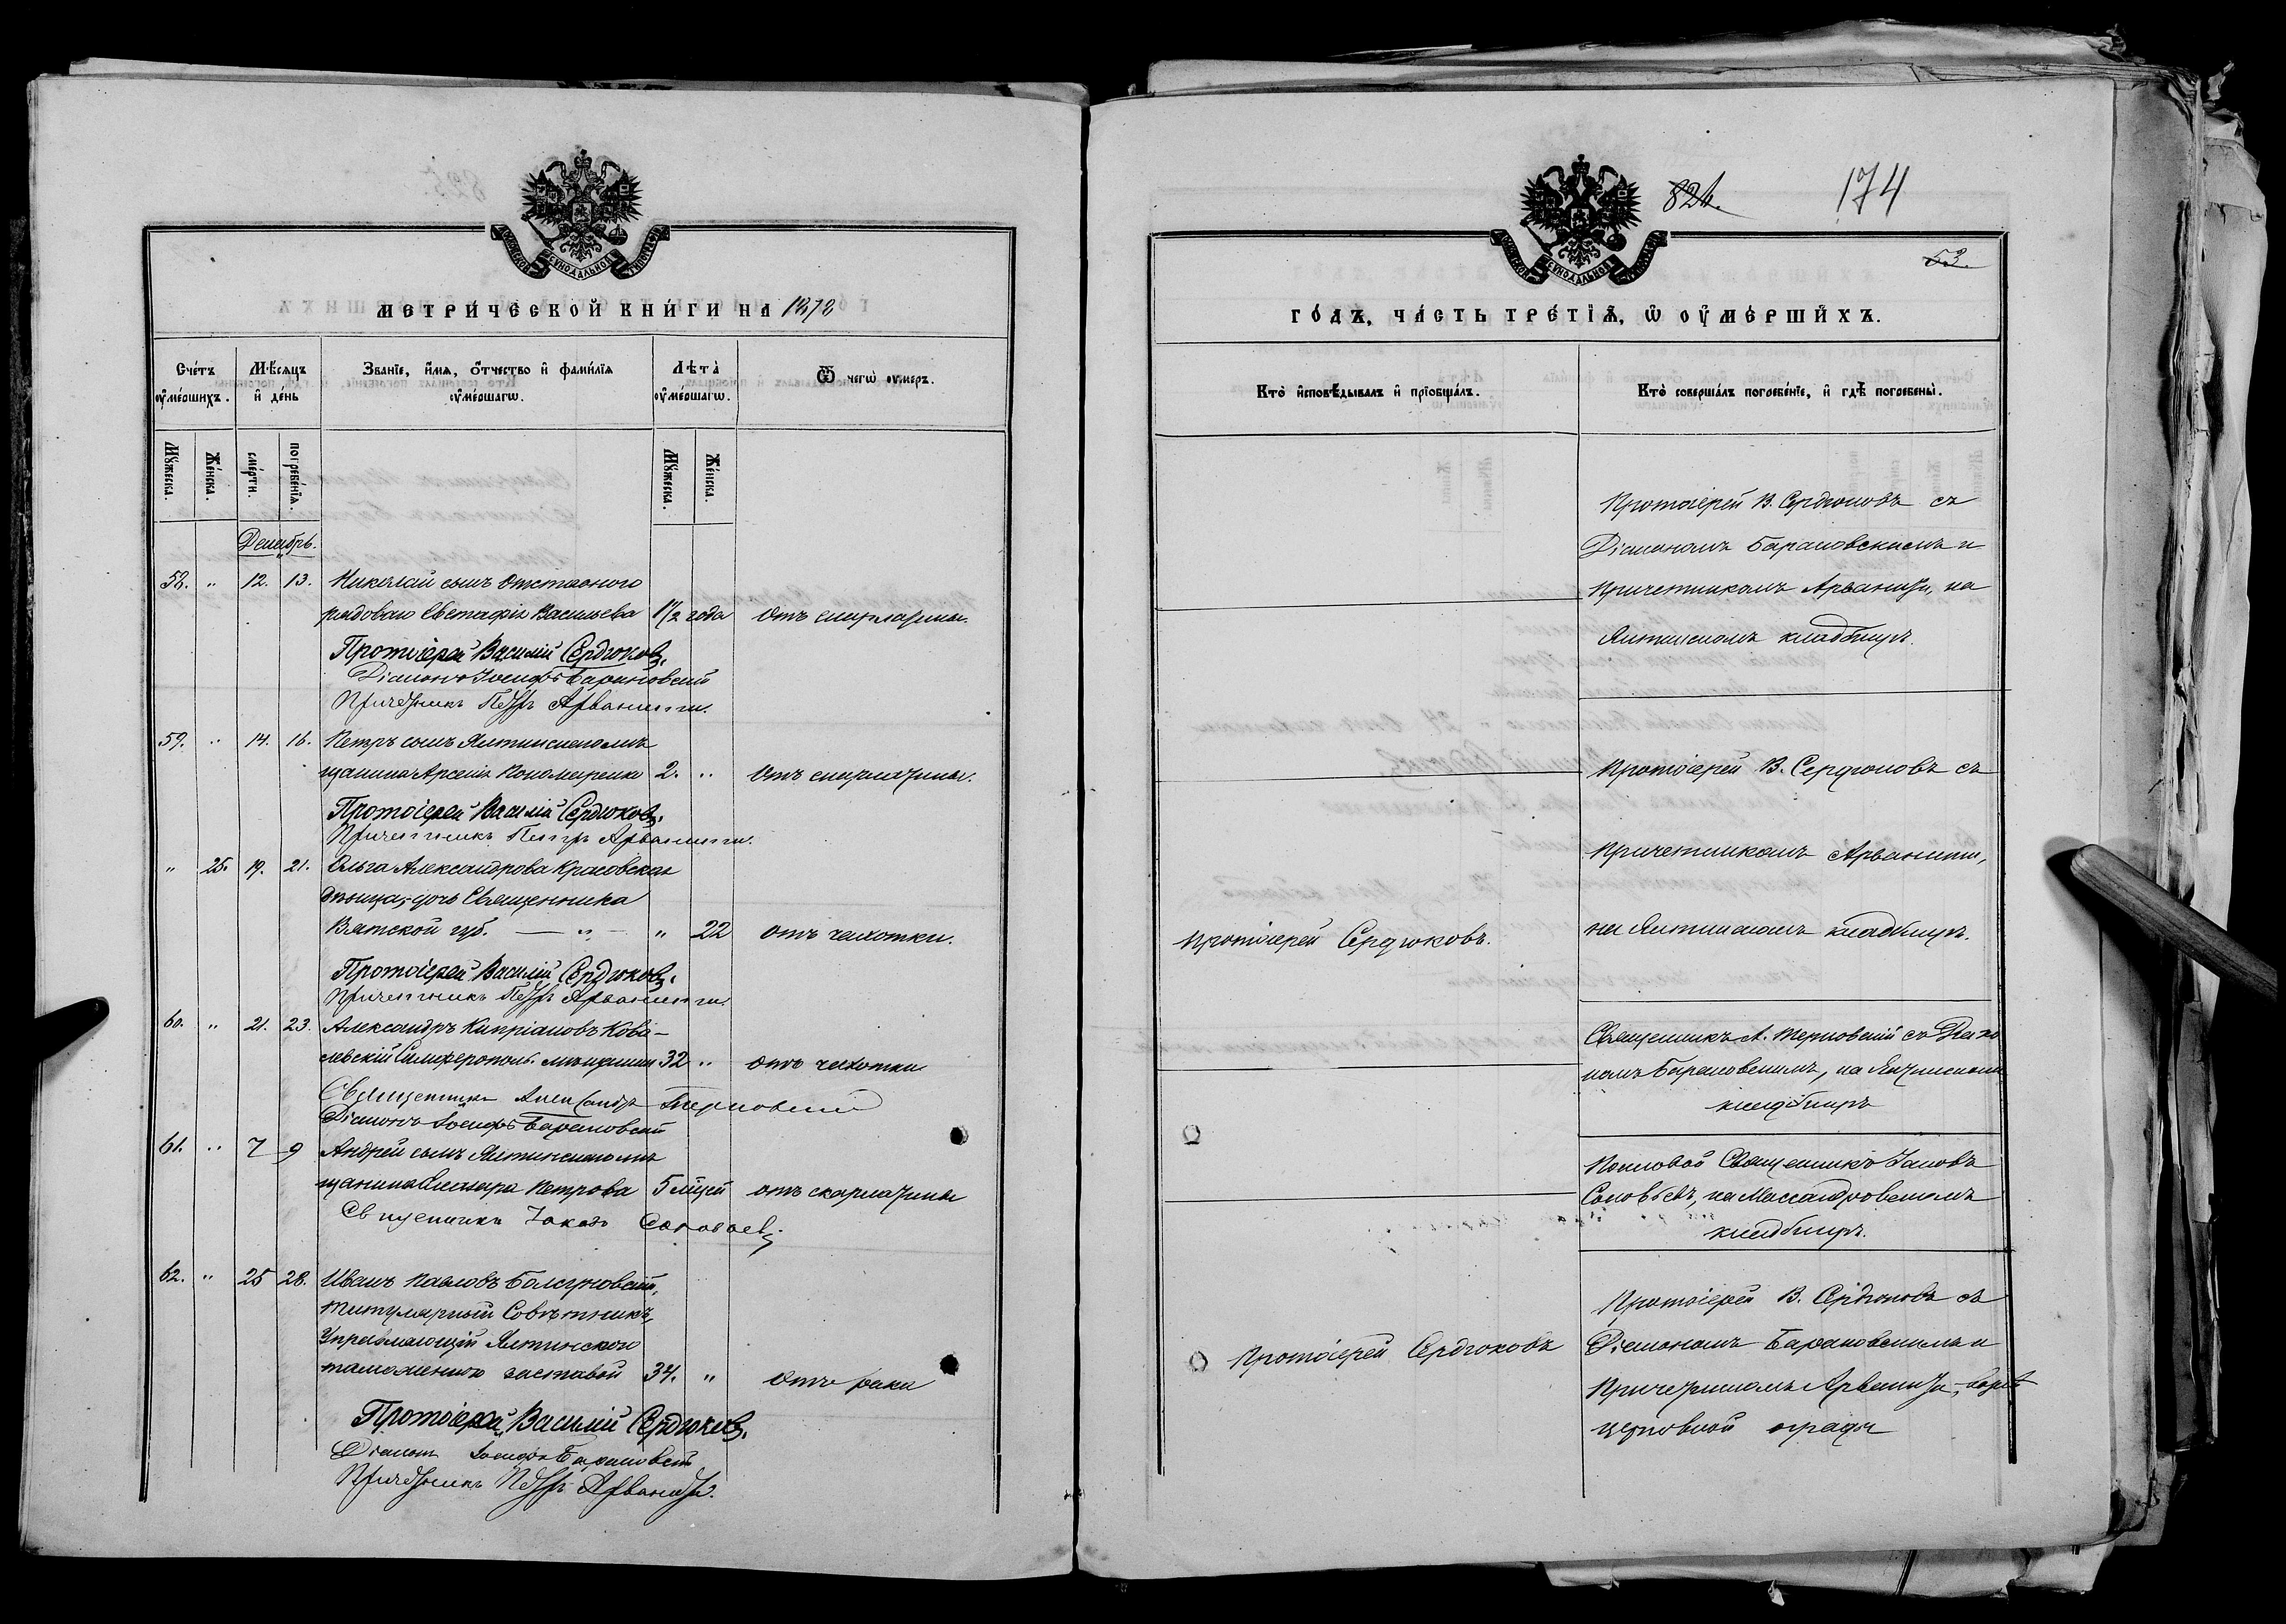 МОСКОВСКОЙ СУНОДАЛЬНОЙ ТИПОГРАФІИ
МЕТРИЧЕСКОЙ КНИГИ НА 1878
Счетъ оумершихъ.
Мѣсяцъ и день
Званіе, имя, отчество и фамилія оумершагѡ.
Лѣта оумершагѡ.
Ѿ чегѡ оумеръ.
Мужеска.
Женска.
смерти.
погребенія.
Мужеска.
Женска.
Декабрь.
58. " 12. 13. Николай сынъ отставного
рядоваго Евстафія Васильева 1 1/2 года отъ скарлатины.
Протоіерей Василій Сердюковъ.
Діаконъ Іосифъ Барановскій
Причетникъ Петръ Арванити.
59. " 14. 16. Петръ сынъ Ялтинскаго мѣ
щанина Арсенія Кономаренка 2. " отъ скарлатины.
Протоіерей Василій Сердюковъ.
Причетникъ Петръ Арванити.
" 25. 19. 21. Ольга Александрова Красовская
дѣвица, дочь Священника
Вятской губ. — " — " 22 отъ чахотки.
Протоіерей Василій Сердюковъ.
Причетникъ Петръ Арванити.
60. " 21. 23. Александръ Кипріановъ Кова-
левскій Симферополь. мѣщанин 32 " отъ чахотки
Священникъ Александръ Терновскій
Діаконъ Іосифъ Барановскій
61. " 7 9 Андрей сынъ Ялтинскаго мѣ
щанина Петрова 5 мцей отъ скарлатины
Священникъ Іаковъ Соловьевъ.
62. " 25 28. Иванъ Павловъ
титулярный Совѣтникъ,
Управляющій Ялтинскою
таможенною заставой 34. " отъ рака
Протоіерей Василій Сердюковъ.
Діаконъ Іосифъ Барановскій
Причетникъ Петръ Арванити.
824.
174
53.
МОСКОВСКОЙ СУНОДАЛЬНОЙ ТИПОГРАФІИ
ГОДЪ, ЧАСТЬ ТРЕТІЯ, Ѡ ОУМЕРШИХЪ.
Кто исповѣдывалъ и пріобщалъ.
Кто совершалъ погребеніе, и гдѣ погребены.
Протоіерей В. Сердюковъ съ
Діакономъ Барановскимъ и
Причетникомъ Арванити, на
Ялтинскомъ кладбищѣ.
Протоіерей В. Сердюковъ съ
Причетникомъ Арванити,
Протоіерей Сердюковъ.
на Ялтинскомъ кладбищѣ.
Священникъ А. Терновскій съ Діако
номъ Барановскимъ, на Ялтинскомъ
кладбищѣ
Полковой Священникъ Іаковъ
Соловьевъ, на Массандровскомъ
кладбищѣ.
Протоіерей Сердюковъ
Протоіерей В. Сердюковъ съ
Діакономъ Барановскимъ и
Причетникомъ Арванити,
церковной оградѣ